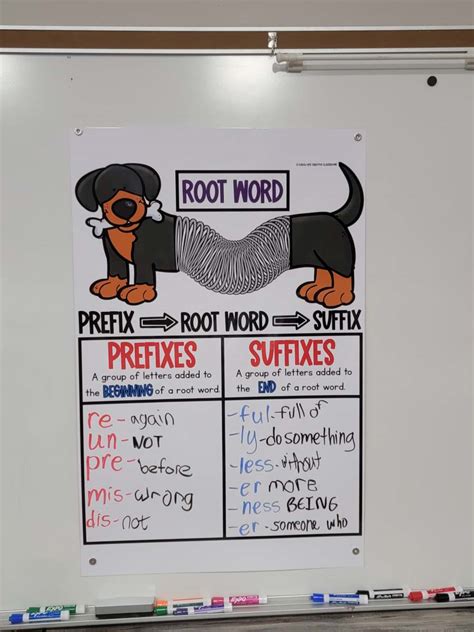 ROOT WORD
PREFIX ROOT WORD SUFFIX
PREFIXES
A group of letters added to
the BEGINNING of a root word.
re- again
un- NOT
pre- before
mis- wrong
dis- not
SUFFIXES
A group of letters added to
the END of a root word.
-ful- full of
-ly- do something
-less- without
-er more
-ness BEING
-er- someone who
EXPO
EXPO